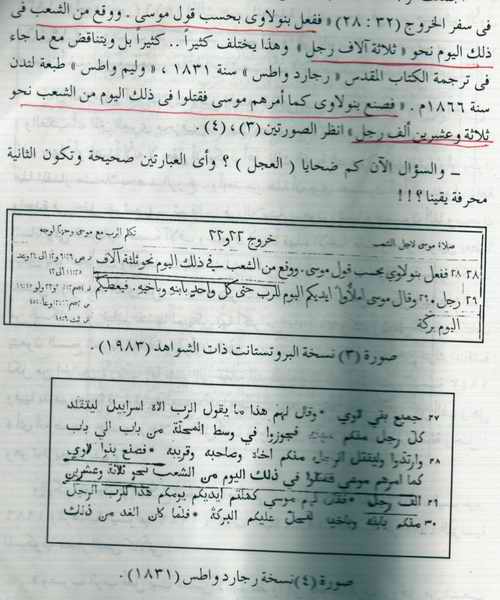 فى سفر الخروج (٣٢ : ٢٨) « ففعل بنولاوى بحسب قول موسى . ووقع من الشعب فى
ذلك اليوم نحو « ثلاثة آلاف رجل » وهذا يختلف كثيراً .. كثيراً بل ويتناقض مع ما جاء
فى ترجمة الكتاب المقدس « رجارد واطس » سنة ١٨٣١ ، « وليم واطس » طبعة لندن
سنة ١٨٦٦م . « فصنع بنولاوى كما أمرهم موسى فقتلوا فى ذلك اليوم من الشعب نحو
ثلاثة وعشرين ألف رجل » انظر الصورتين (٣) ، (٤) .
ــ والسؤال الآن كم ضحايا ( العجل ) ؟ وأى العبارتين صحيحة وتكون الثانية
محرفة يقينا ؟ ! ! !
صلاة موسى لاجل الشعب
خروج ٣٢ و٣٣
تكلم الرب مع موسى وجها لوجه
٢٨ ٢٨ ففعل بنو لاوي بحسب قول موسى . ووقع من الشعب في ذلك اليوم نحو ثلثة آلاف
٢٩ رجل ٢٩٠ وقال موسى املأوا ايديكم اليوم للرب حتى كل واحد بابنه وباخيه . فيعطيكم
اليوم بركة
صورة (٣) نسخة البروتستانت ذات الشواهد (١٩٨٣) .
٢٧ جميع بني لاوي * وقال لهم هذا ما يقول الرب الاه اسراييل ليتقلد
كل رجل منكم سيفه فجوزوا في وسط المحلة من باب الي باب
وارتدوا وليقتل الرجل منكم اخاه وصاحبه وقريبه * فصنع بنوا لاوي
٢٨ كما امرهم موسى فقتلوا في ذلك اليوم من الشعب نحو ثلاثة وعشرين
٢٩ الف رجل * فقال لهم موسي كملتم ايديكم يومكم هذا للرب الرجل
٣٠ منكم بابنه وباخيه لتحل عليكم البركة * فلما كان الغد من ذلك
صورة (٤) نسخة رجارد واطس (١٨٣١) .